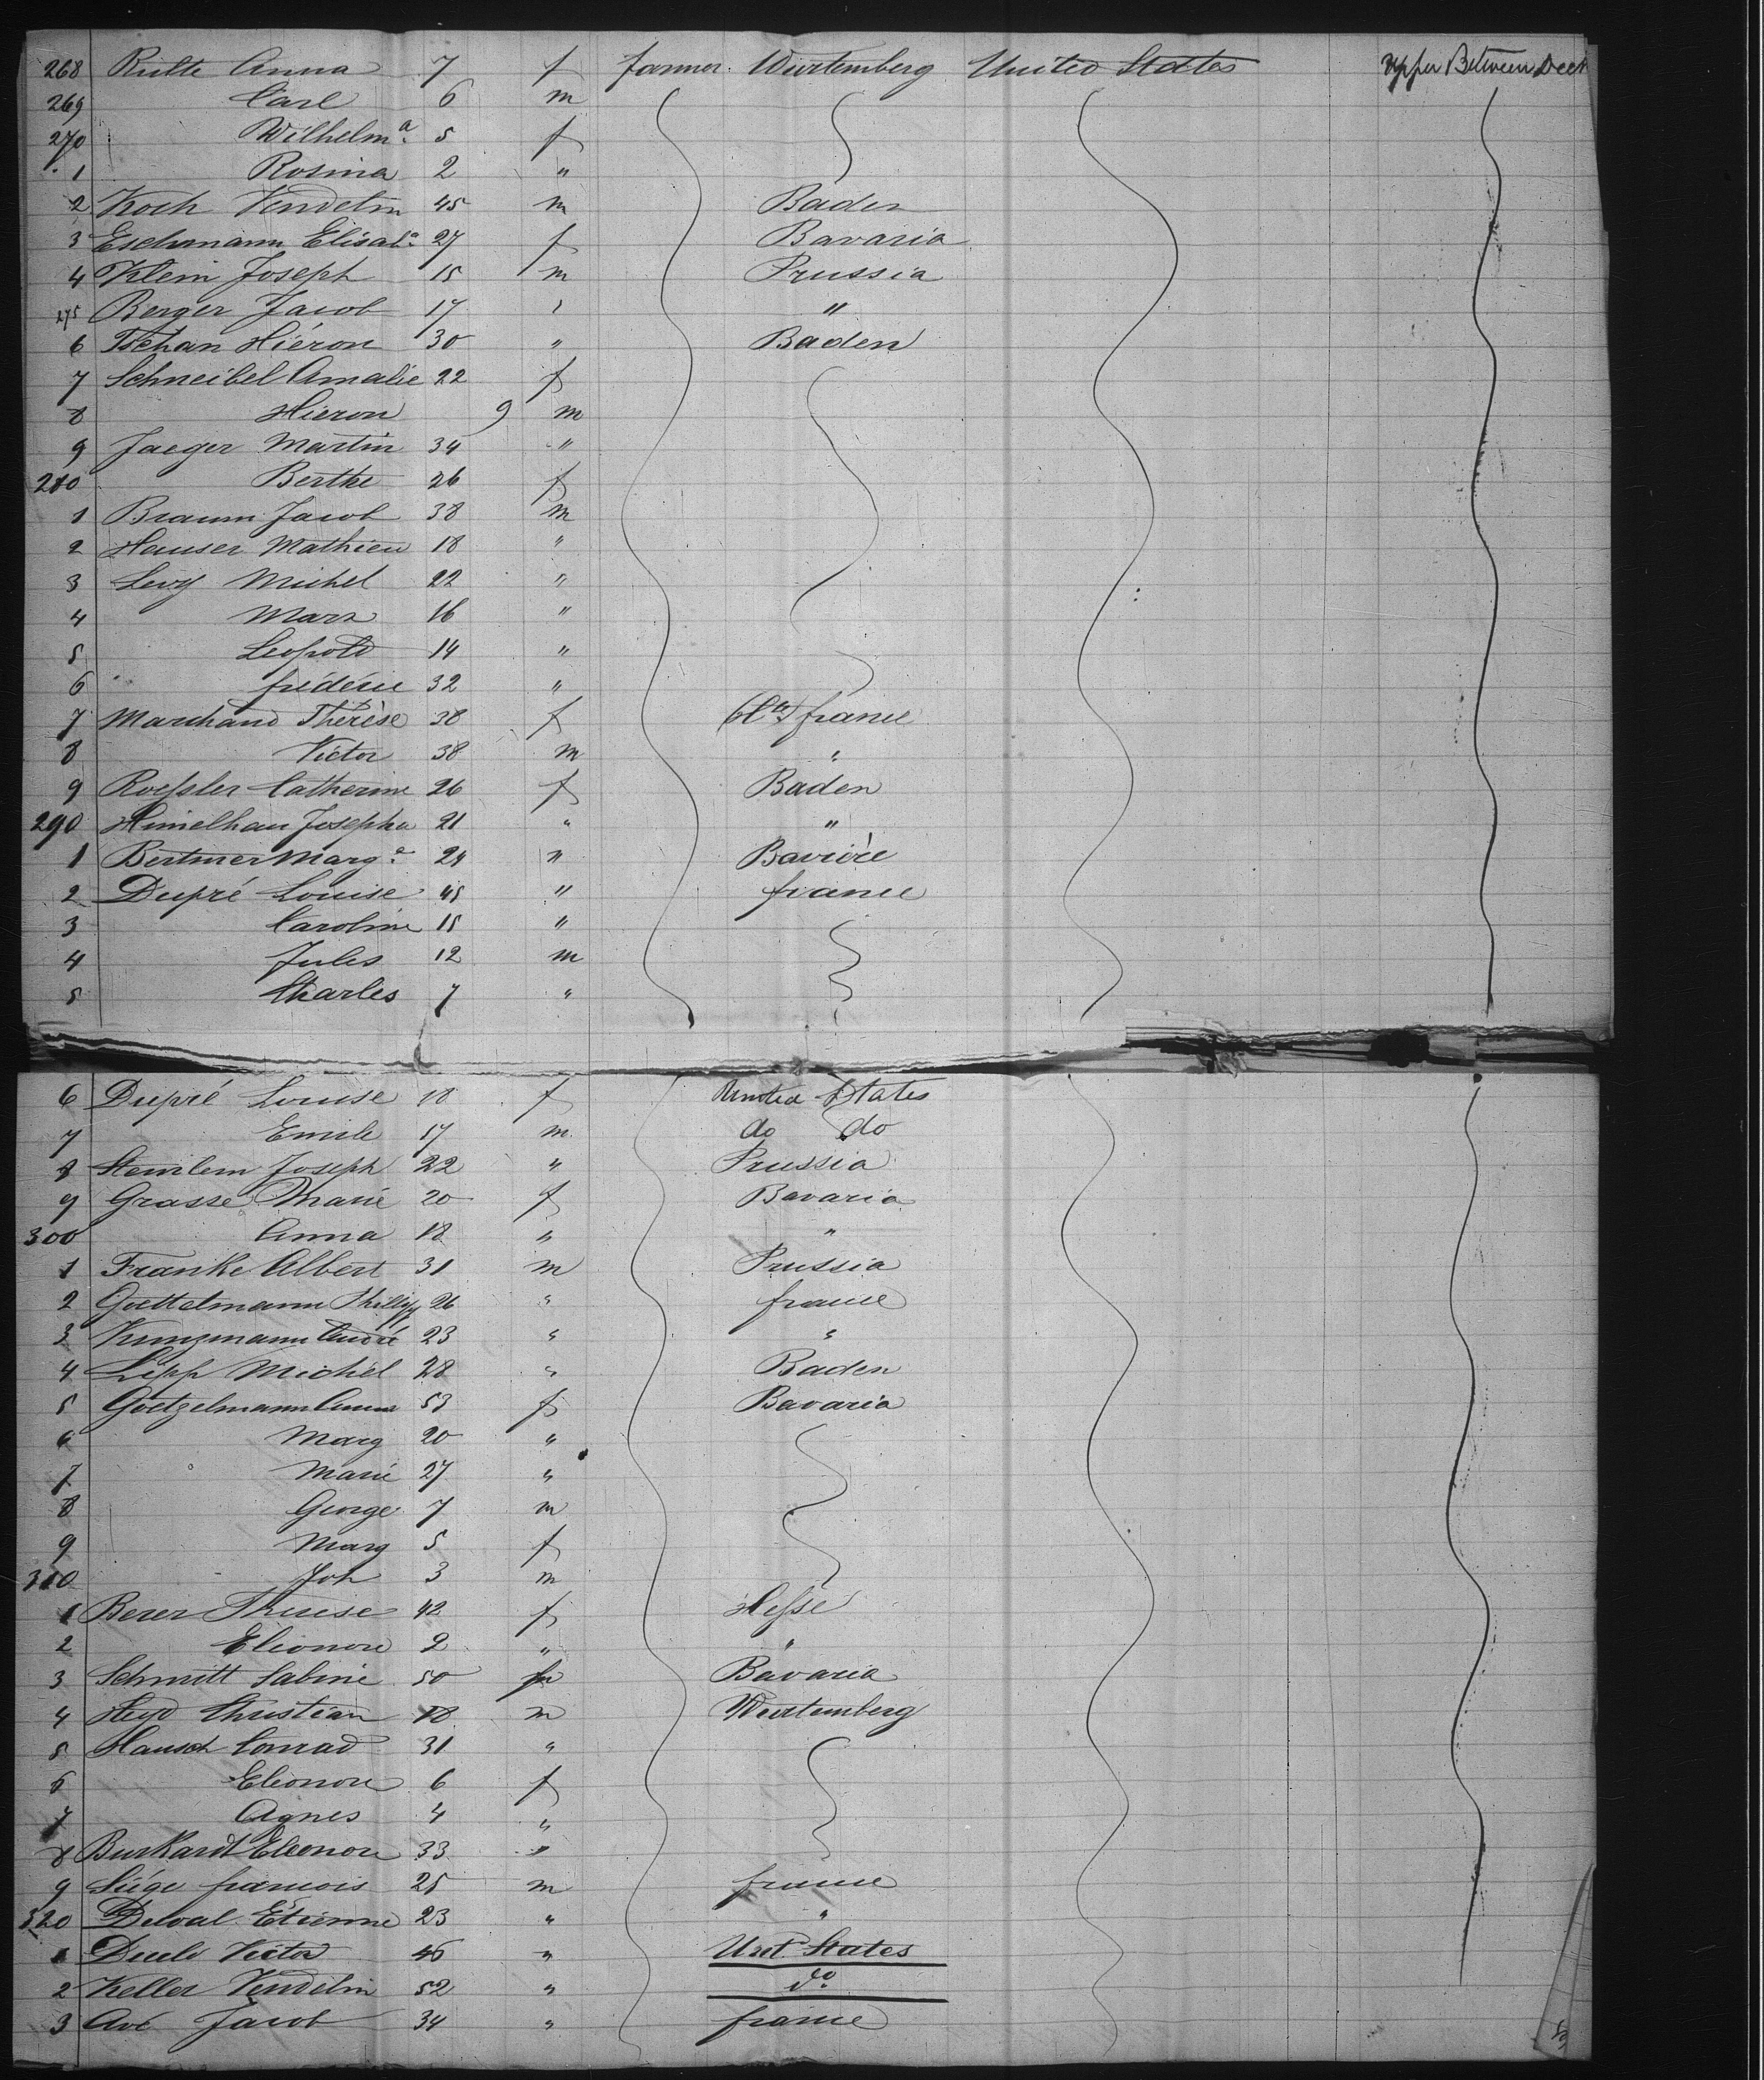 268 Rulte Anna 7 f farmer Wurtemberg United States Upper Between Deck
269 Carl 6 m
270 Wilhelmª 5 f
1 Rosina 2 "
2 Koch Vendelin 45 m Baden
3 Eschmann Elisabª 27 f Bavaria
4 Klein Joseph 15 m Prussia
275 Berger Jacob 17 " "
6 Tschan Hiéron 30 " Baden
7 Schneibel Amalie 22 f
8 Hieron 9 m
9 Jaeger Martin 34 "
280 Berthe 26 f
1 Braun Jacob 38 m
2 Hauser Mathieu 18 "
3 Levy Michel 22 "
4 Marx 16 "
5 Leopold 14 "
6 frédéric 32 "
7 Marchand Thérèse 38 f france
8 Victor 38 m "
9 Roessler Catherine 26 f Baden
290 Himelhan Josepha 21 " "
1 Bertmer Marg.e 24 " Bavière
2 Dupré Louise 45 " france
3 Caroline 15 "
4 Jules 12 m
5 Charles 7 "
6 Dupré Louise 18 f United States
7 Emile 17 m do do
8 Joseph 22 " Prussia
9 Grasse Marie 20 f Bavaria
300 Anna 18 " "
1 Franke Albert 31 m Prussia
2 Goettelmann Philipp 26 " france
3 Kunzmann André 23 " "
4 Lipp Michel 28 " Baden
5 Goetzelmann Anna 53 f Bavaria
6 Marg 20 "
7 Marie 27 "
8 George 7 m
9 Marg 5 f
310 Joh 3 m
1 Berer Therese 42 f Hesse
2 Eleonore 9 " "
3 Schmitt Sabine 50 f Bavaria
4 Heyd Christian 18 m Wurtemberg
5 Hausch Conrad 31 "
6 Eleonore 6 f
7 Agnes 4 "
8 Burkardt Eleonore 33 "
9 Liége francois 25 m france
320 Delval Étienne 23 " "
1 Victor 46 " Unit States
2 Keller Vendelin 52 " do
3 Jacob 34 " france